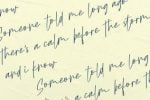 know
Someone told me long ago
there's a calm before the storm
and i know
Someone told me long
a calm before th